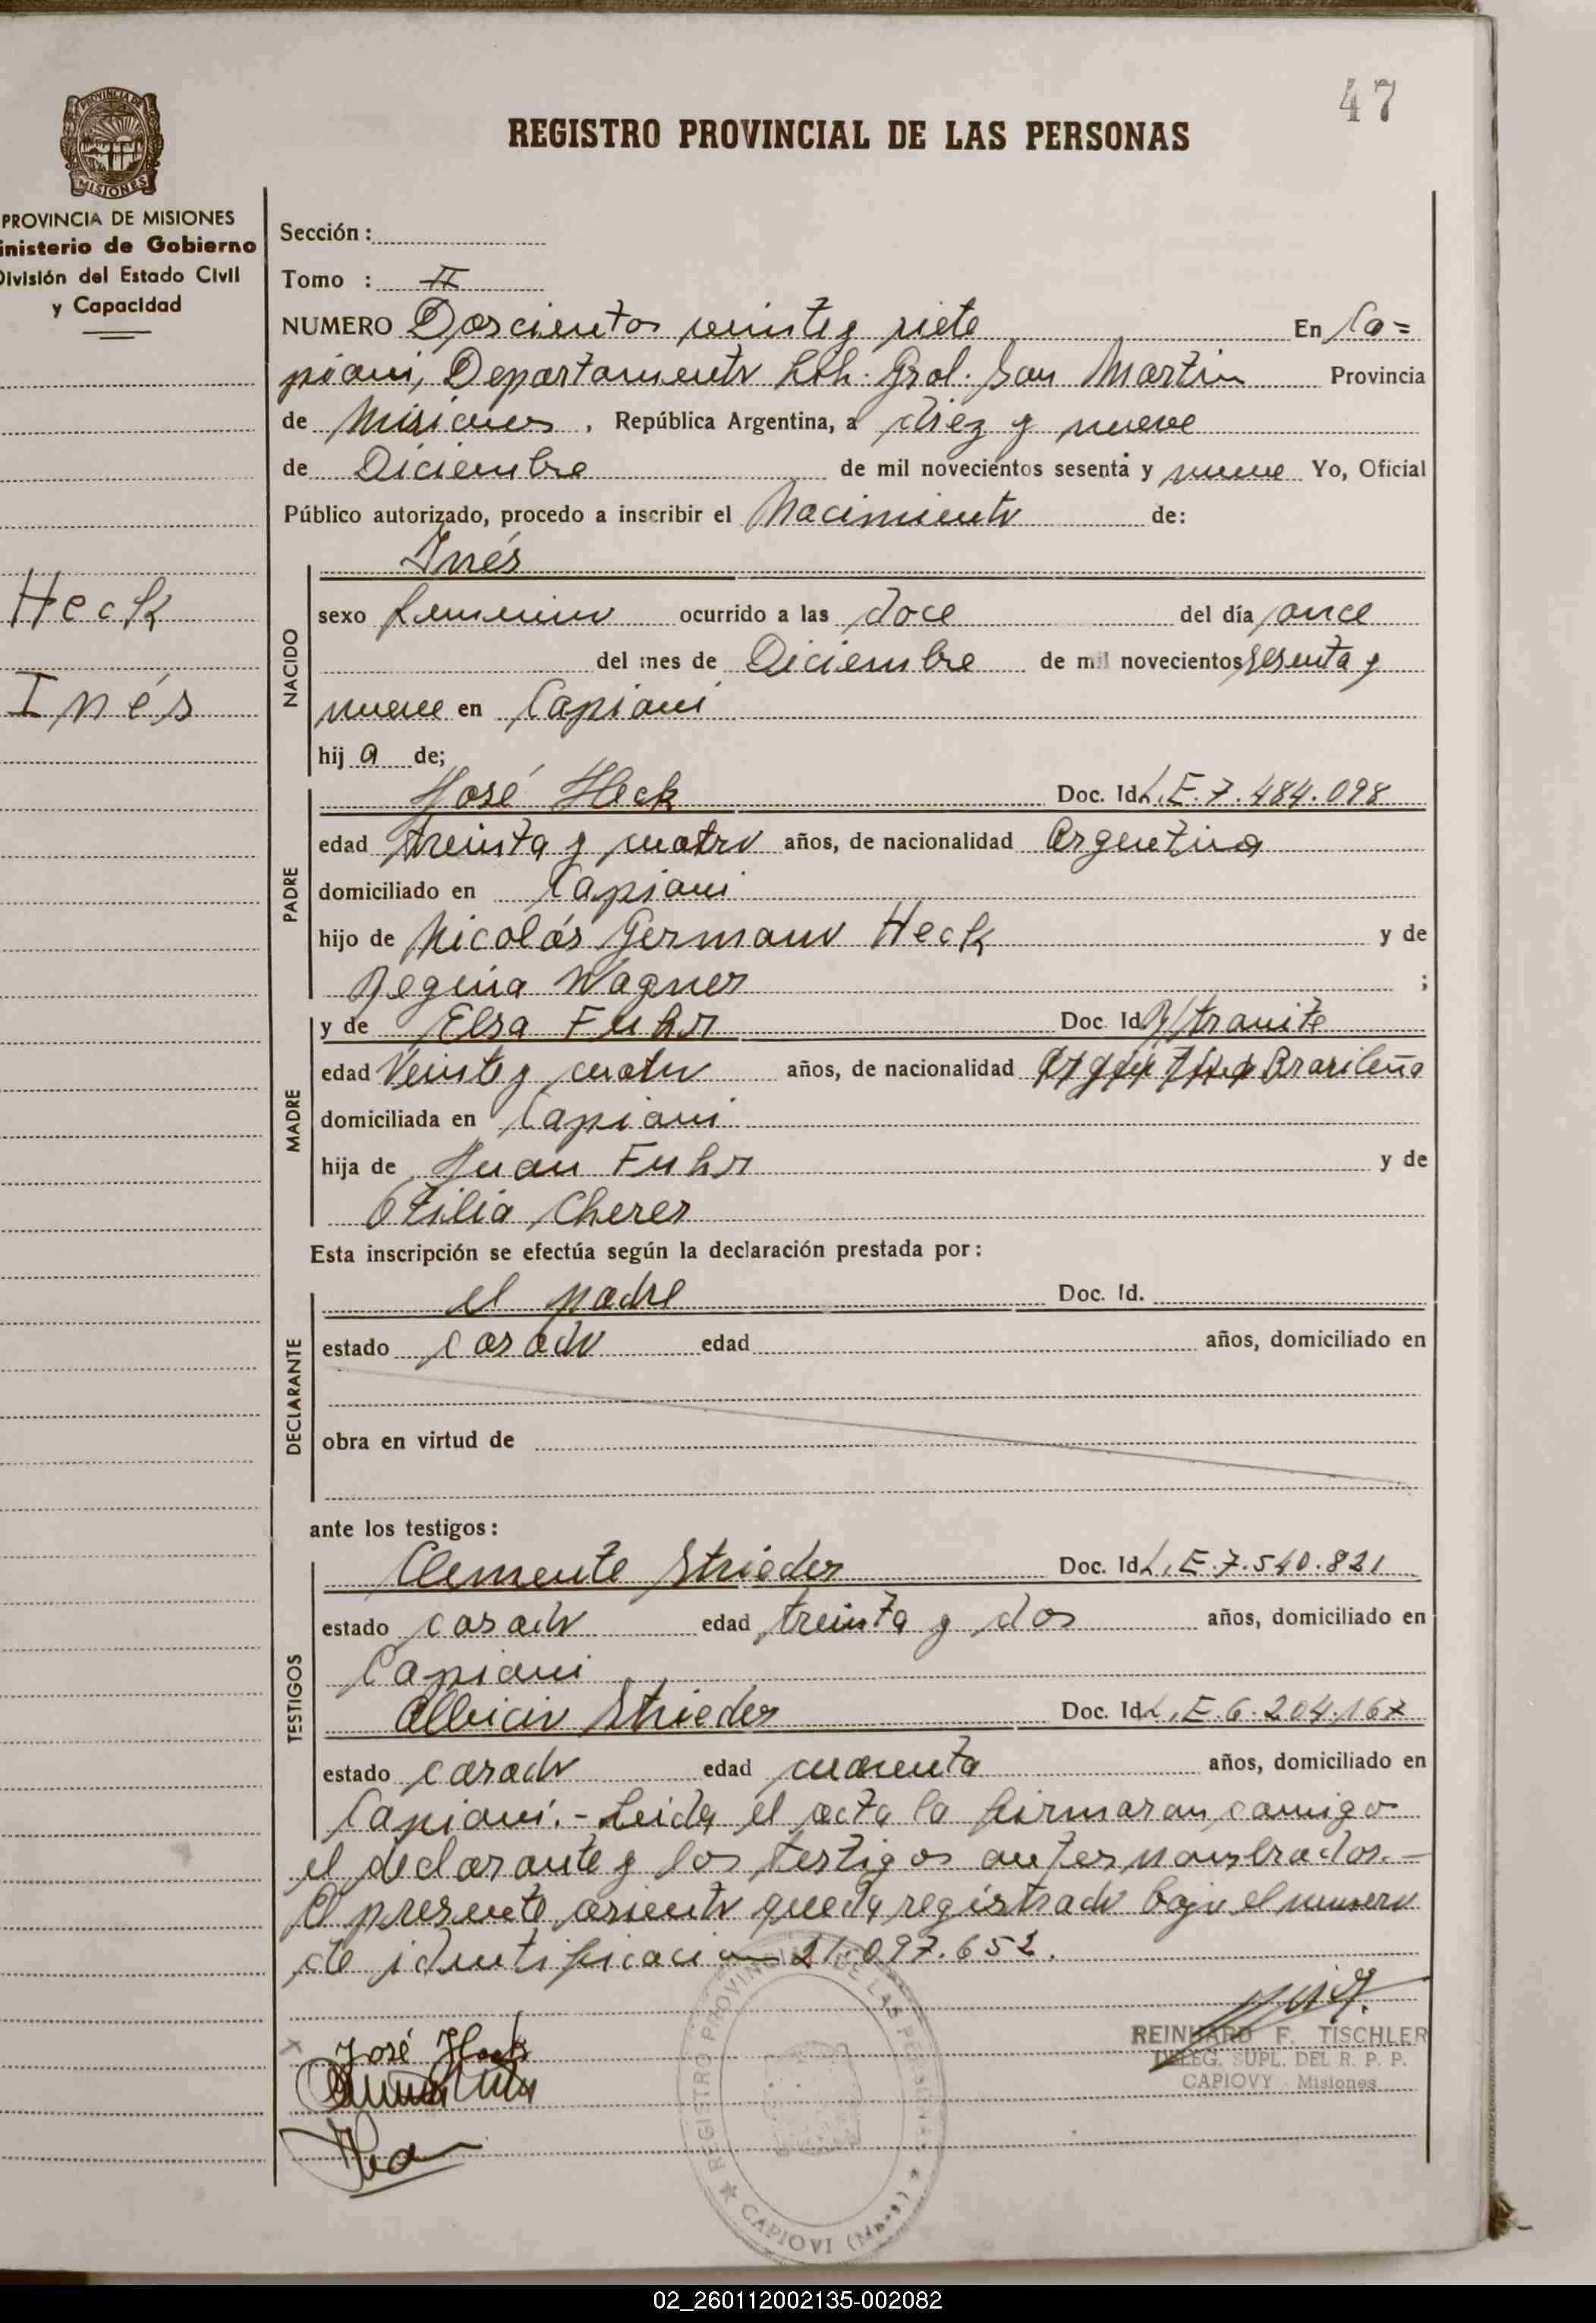 47
REGISTRO PROVINCIAL DE LAS PERSONAS
PROVINCIA DE MISIONES
MISIONES
PROVINCIA DE MISIONES
inisterio de Gobierno
División del Estado Civil
y Capacidad
Heck
Inés
Sección :
Tomo : II
NUMERO Doscientos veinte y siete En Ca=
piovi, Departamento Lib. Gral. San Martin Provincia
de Misiones, República Argentina, a diez y nueve
de Diciembre de mil novecientos sesenta y nueve Yo, Oficial
Público autorizado, procedo a inscribir el Nacimiento de:
NACIDO
Inés
sexo femenino ocurrido a las doce del día once
del mes de Diciembre de mil novecientos sesenta y
nueve en Capiovi
hij a de;
PADRE
José Heck Doc. Id. L.E. 7.484.098
edad treinta y cuatro años, de nacionalidad Argentina
domiciliado en Capiovi
hijo de Nicolás Germano Heck y de
Regina Wagner ;
MADRE
y de Elsa Fuhr Doc. Id. R/tramite
edad Veinte y cuatro años, de nacionalidad Argentina Brasileña
domiciliada en Capiovi
hija de Juan Fuhr y de
Otilia Cherer
Esta inscripción se efectúa según la declaración prestada por :
DECLARANTE
el padre Doc. Id.
estado casado edad años, domiciliado en
obra en virtud de
ante los testigos :
TESTIGOS
Clemente Strieder Doc. Id. L.E. 7.540.821
estado casado edad treinta y dos años, domiciliado en
Capiovi
Albicio Strieder Doc. Id. L.E. 6.204.167
estado casado edad cuarenta años, domiciliado en
Capiovi.- Leida el acta la firmaran comigo
el declarante y los testigos antes nombrados.-
El presente asiento queda registrado bajo el numero
de identificacion 21.097.652.
José Heck
REINHARD F. TISCHLER
DELEG. SUPL. DEL R. P. P.
CAPIOVY - Misiones
REGISTRO PROVINCIAL DE LAS PERSONAS
CAPIOVI (Mnes)
02_260112002135-002082